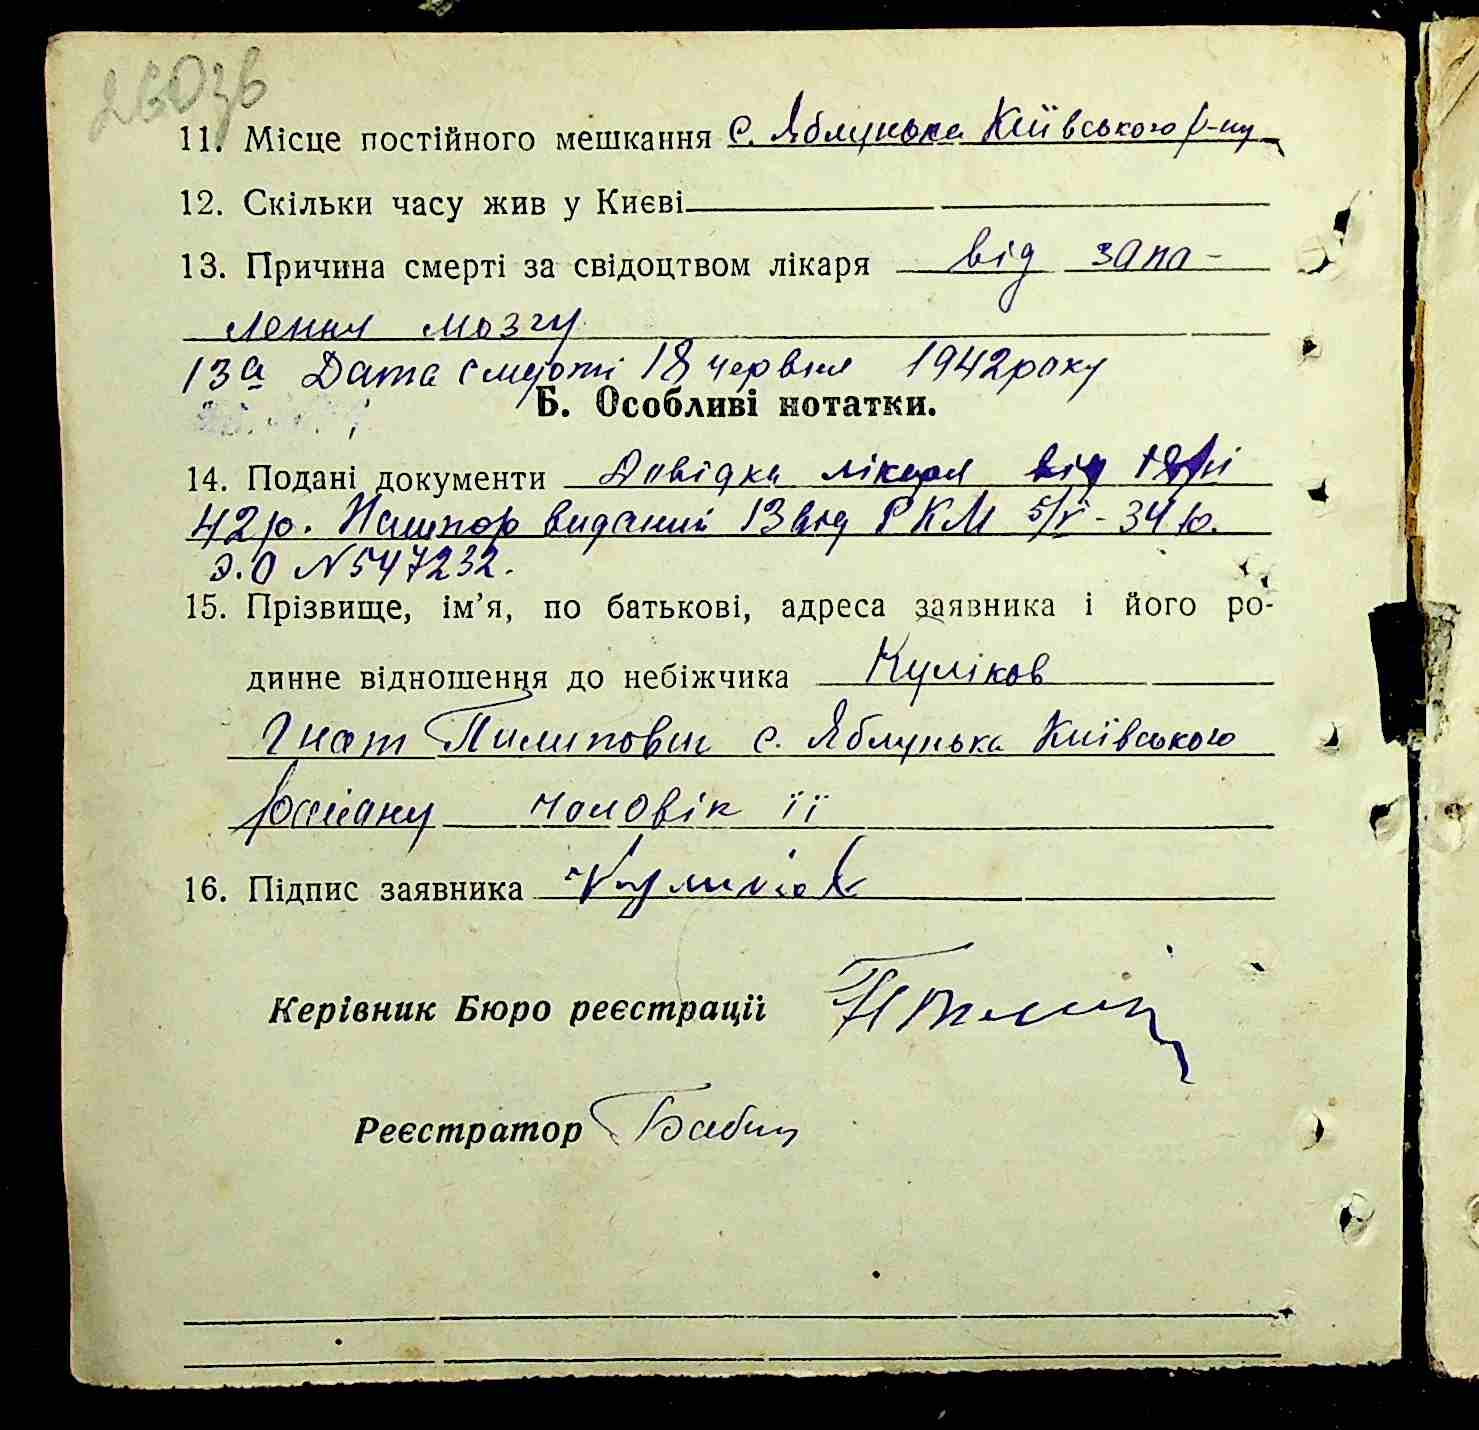 11. Місце постійного мешкання с. Яблунька Київського р-ну
12. Скільки часу жив у Києві
13. Причина смерті за свідоцтвом лікаря від запа-
лення мозгу
13а Дата смерті 18 червня 1942 року
Б. Особливі нотатки.
14. Подані документи Довідка лікаря від
42 р. Пашпор виданий 13 від РКМ 5/V - 34 р.
Э.О N 547232.
15. Прізвище, ім’я, по батькові, адреса заявника і його ро-
динне відношення до небіжчика Куліков
Гнат Пилипович с. Яблунька Київського
району чоловік її
16. Підпис заявника
Керівник Бюро реєстрації
Реєстратор